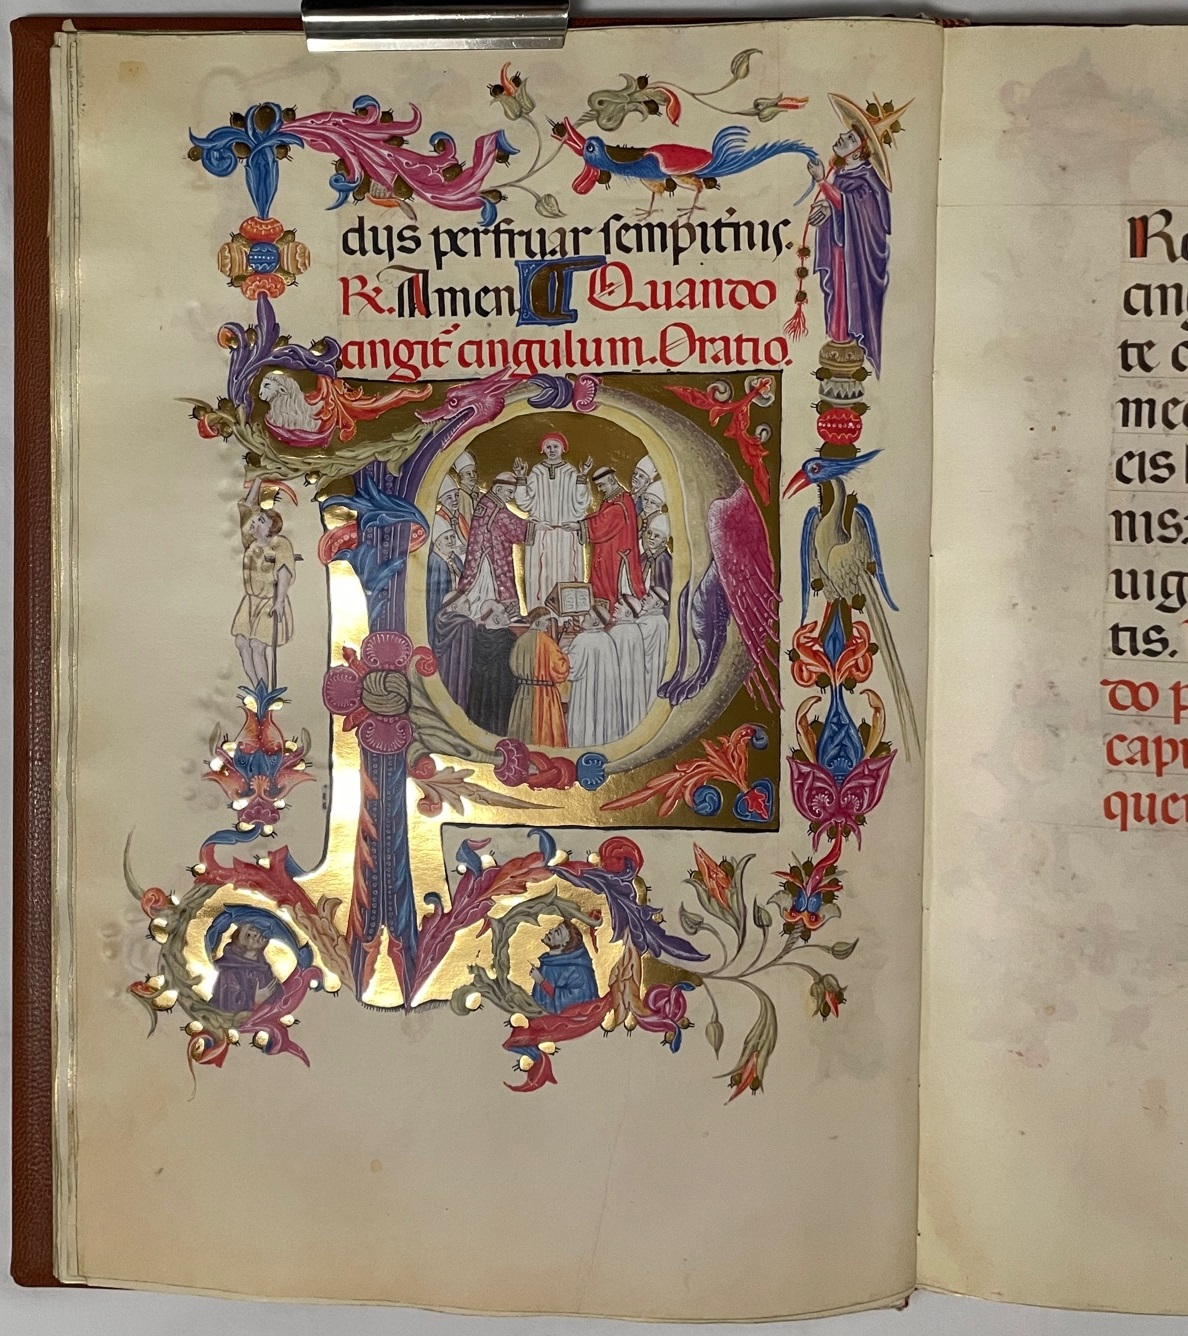 dijs perfruar sempit̃nis.
R. Amen. Quando
cingit̃ cingulum. Oratio.
P
cing
te c
me
cis
nis
uig
tis.
do p
capi
quer